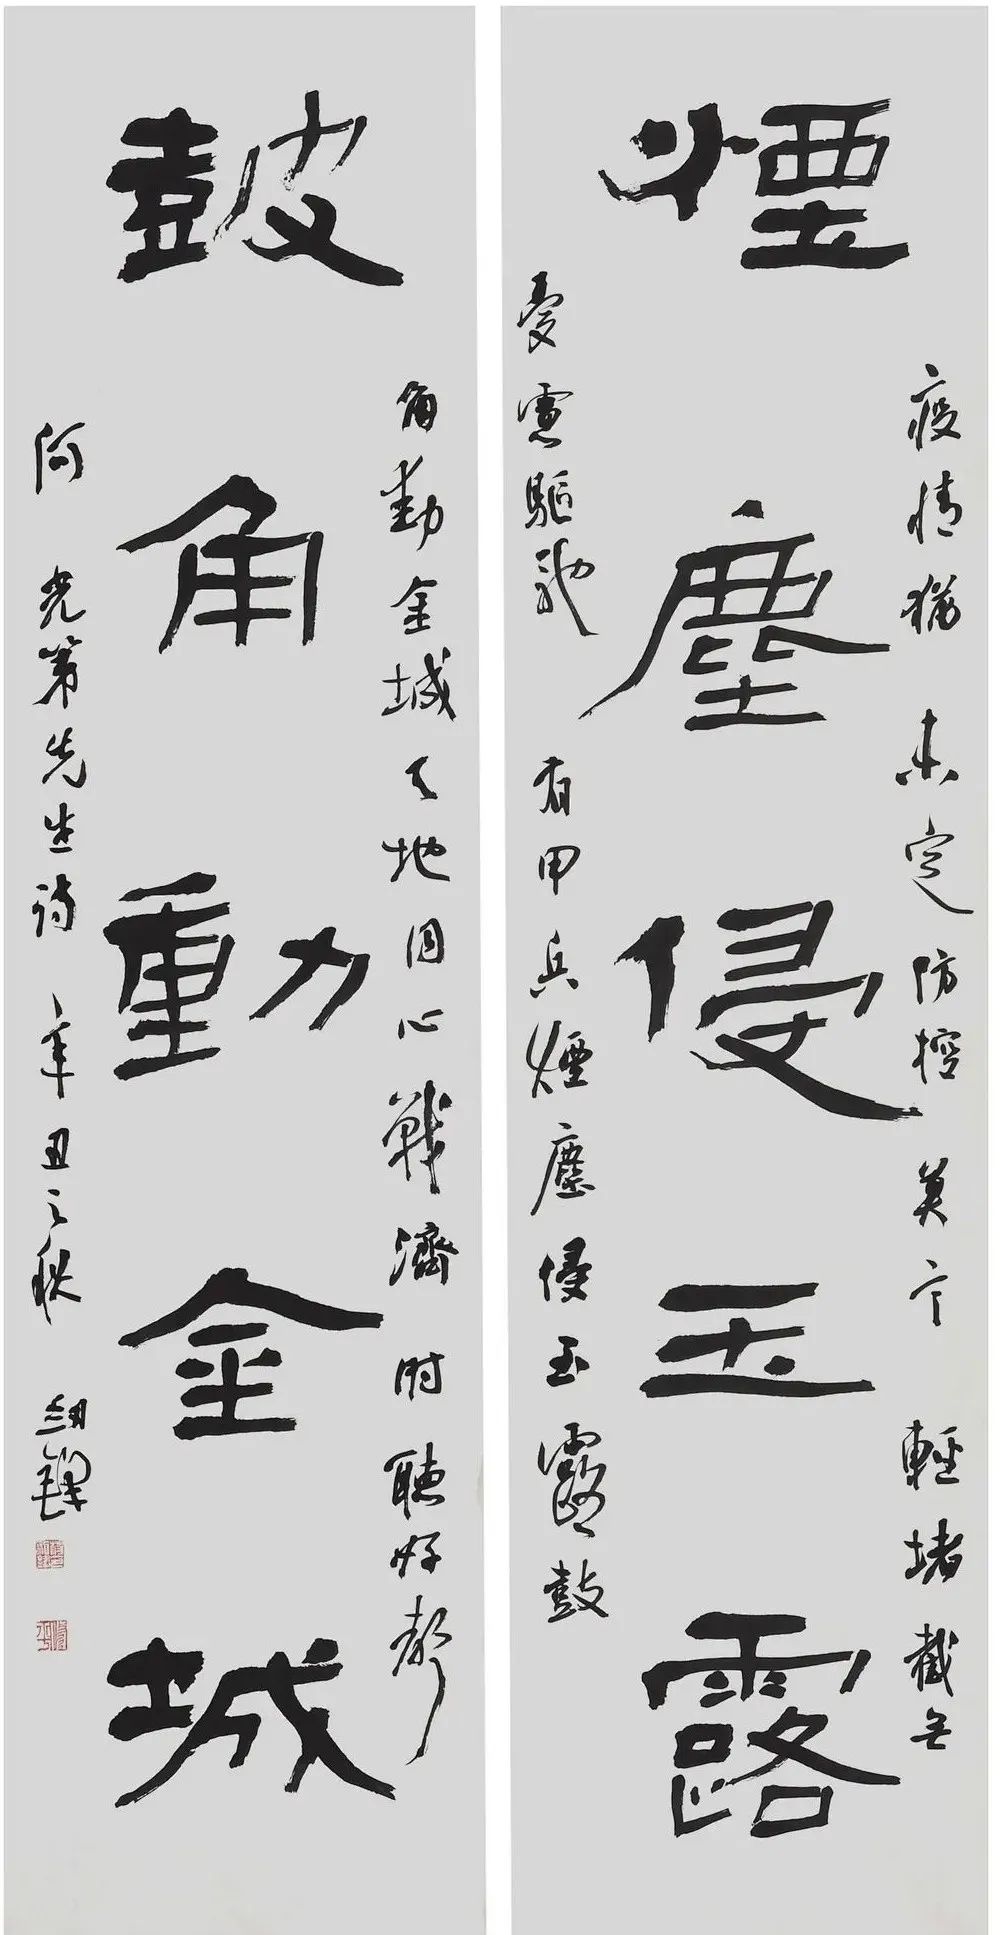 煙塵侵玉露
疫情猶未定防控莫言輕堵截無
憂慮驅馳有甲兵煙塵侵玉露鼓
鼓角動金城
角動金城天地同心戰濟時聽好聲
何光第先生詩辛丑之秋